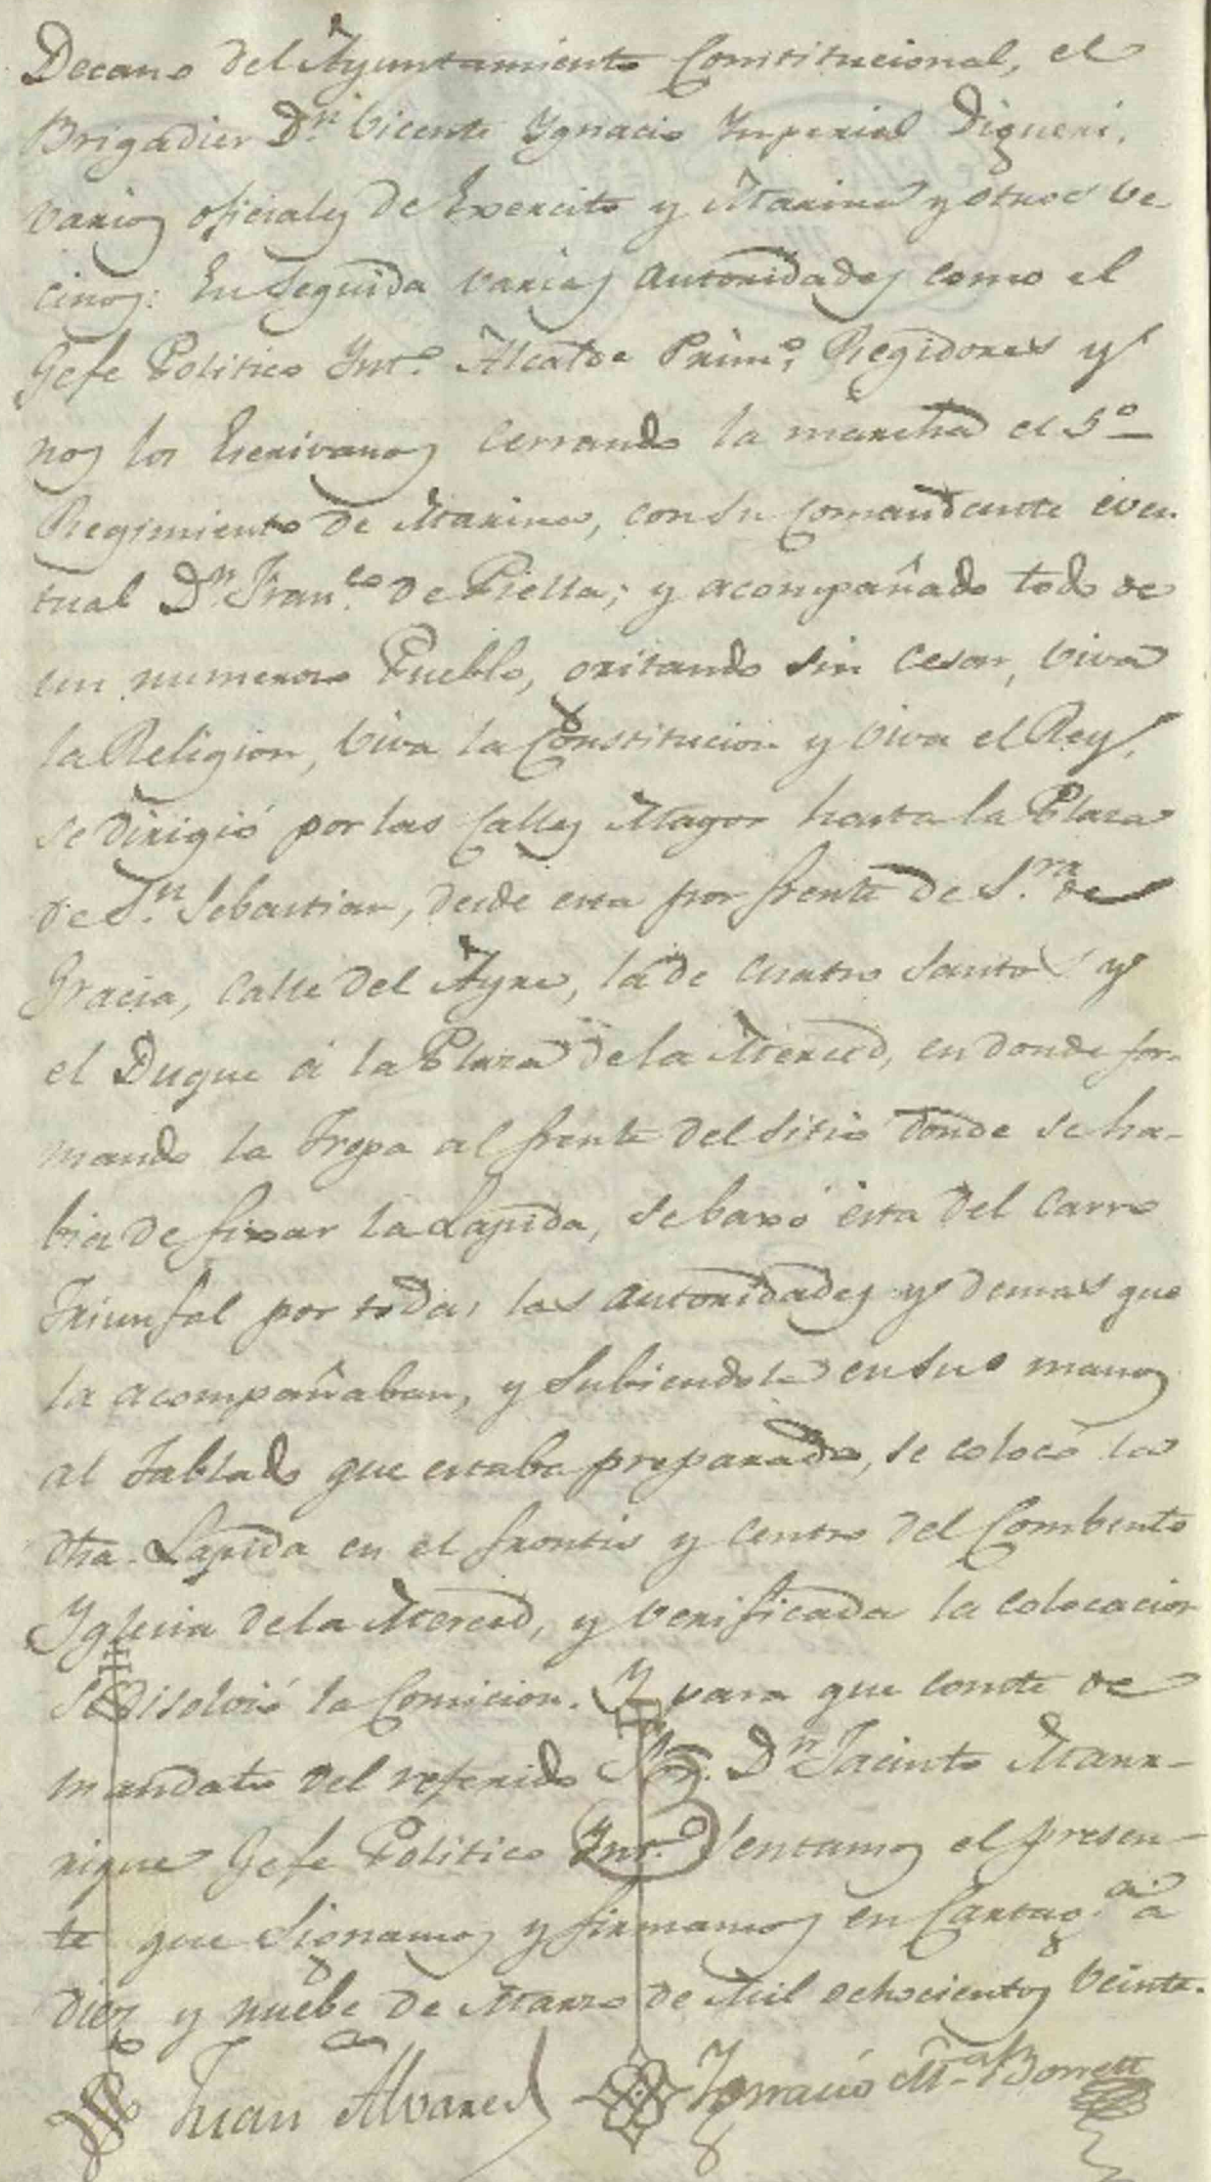 Decano del Ayuntamiento Constitucional, el
Brigadier Dn. Vicente Ygnacio Imperial Digueri,
varios oficiales de Exercito y Marina y otros ve-
cinos: En seguida varias autoridades como el
Gefe Politico Int.º Alcalde Prim.º, Regidores y
nos los Escrivanos cerrando la marcha el 5º
Regimiento de Marina, con su Comandante even-
tual Dn. Fran.co de Piella; y acompañado todo de
un numeroso Pueblo, gritando sin cesar, viva
la Religion, viva la Constitucion y viva el Rey,
se dirigió por las Calles Mayor hasta la Plaza
de Sn. Sebastian, desde esta por frente de S.ra de
Gracia, calle del Ayre, la de cuatro Santos y
el Duque á la Plaza de la Merced, en donde for-
mando la Tropa al frente del Sitio donde se ha-
bia de fixar la Lapida, se baxó esta del Carro
Triunfal por todas las autoridades y demas que
la acompañaban, y subiendola en sus manos
al tablado que estaba preparado, se colocó la
dha. Lapida en el frontis y centro del Combento
Yglesia de la Merced, y verificada la colocacion
se disolvió la Comicion. Y para que conste de
mandato del referido Sor. Dn. Jacinto Manr-
rique Gefe Politico Int.º sentamos el presen-
te que signamos y firmamos en Cartag.a á
diez y nuebe de Marzo de Mil ochocientos veinte.
Juan Alvarez Ignacio M.a Borrett